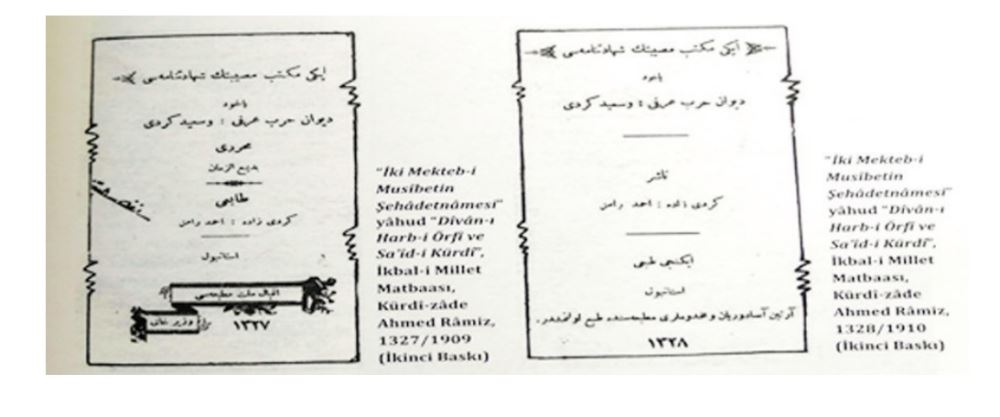 ایكی مكتب مصیبتك شهادتنامه‌سی
یاخود
دیوان حرب عرفی : وسعید كردی
محرری
بدیع الزمان
طابعی
كردی زاده : احمد رامز
استانبول
اقبال ملت مطبعه‌سی
وزیر خانی
١٣٢٧
"İki Mekteb-i
Musîbetin
Şehâdetnâmesi"
yâhud "Dîvân-ı
Harb-i Örfî ve
Sa'id-i Kürdî",
İkbal-i Millet
Matbaası,
Kürdî-zâde
Ahmed Râmiz,
1327/1909
(İkinci Baskı)
ایكی مكتب مصیبتك شهادتنامه‌سی
یاخود
دیوان حرب عرفی : وسعید كردی
ناشر
كردی زاده : احمد رامز
ایكنجی طبعی
استانبول
آرتین آسادوریان و مخدوملری مطبعه‌سنده طبع اولنمشدر.
١٣٢٨
"İki Mekteb-i
Musîbetin
Şehâdetnâmesi"
yâhud "Dîvân-ı
Harb-i Örfî ve
Sa'id-i Kürdî",
İkbal-i Millet
Matbaası,
Kürdî-zâde
Ahmed Râmiz,
1328/1910
(İkinci Baskı)